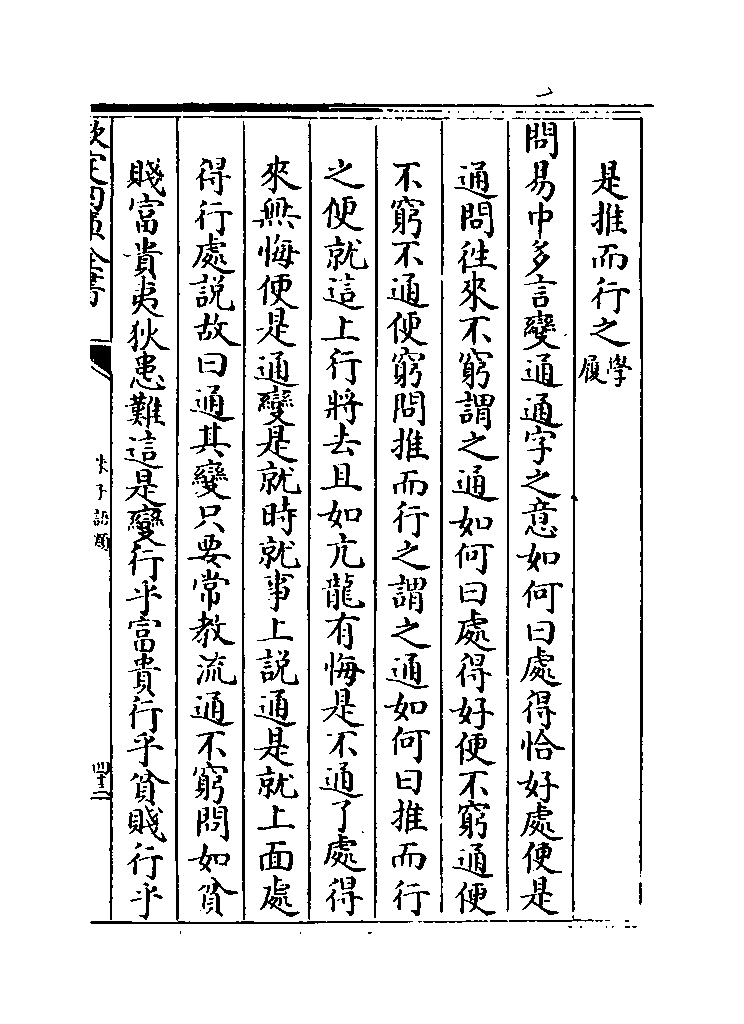 是推而行之學履
問易中多言變通通字之意如何曰處得恰好處便是
通問徃來不窮謂之通如何曰處得好便不窮通便
不窮不通便窮問推而行之謂之通如何曰推而行
之便就這上行將去且如亢龍有悔是不通了處得
來無悔便是通變是就時就事上説通是就上面處
得行處説故曰通其變只要常教流通不窮問如貧
賤富貴夷狄患難這是變行乎富貴行乎貧賤行乎
欽定四庫全書
朱子語類
四十二